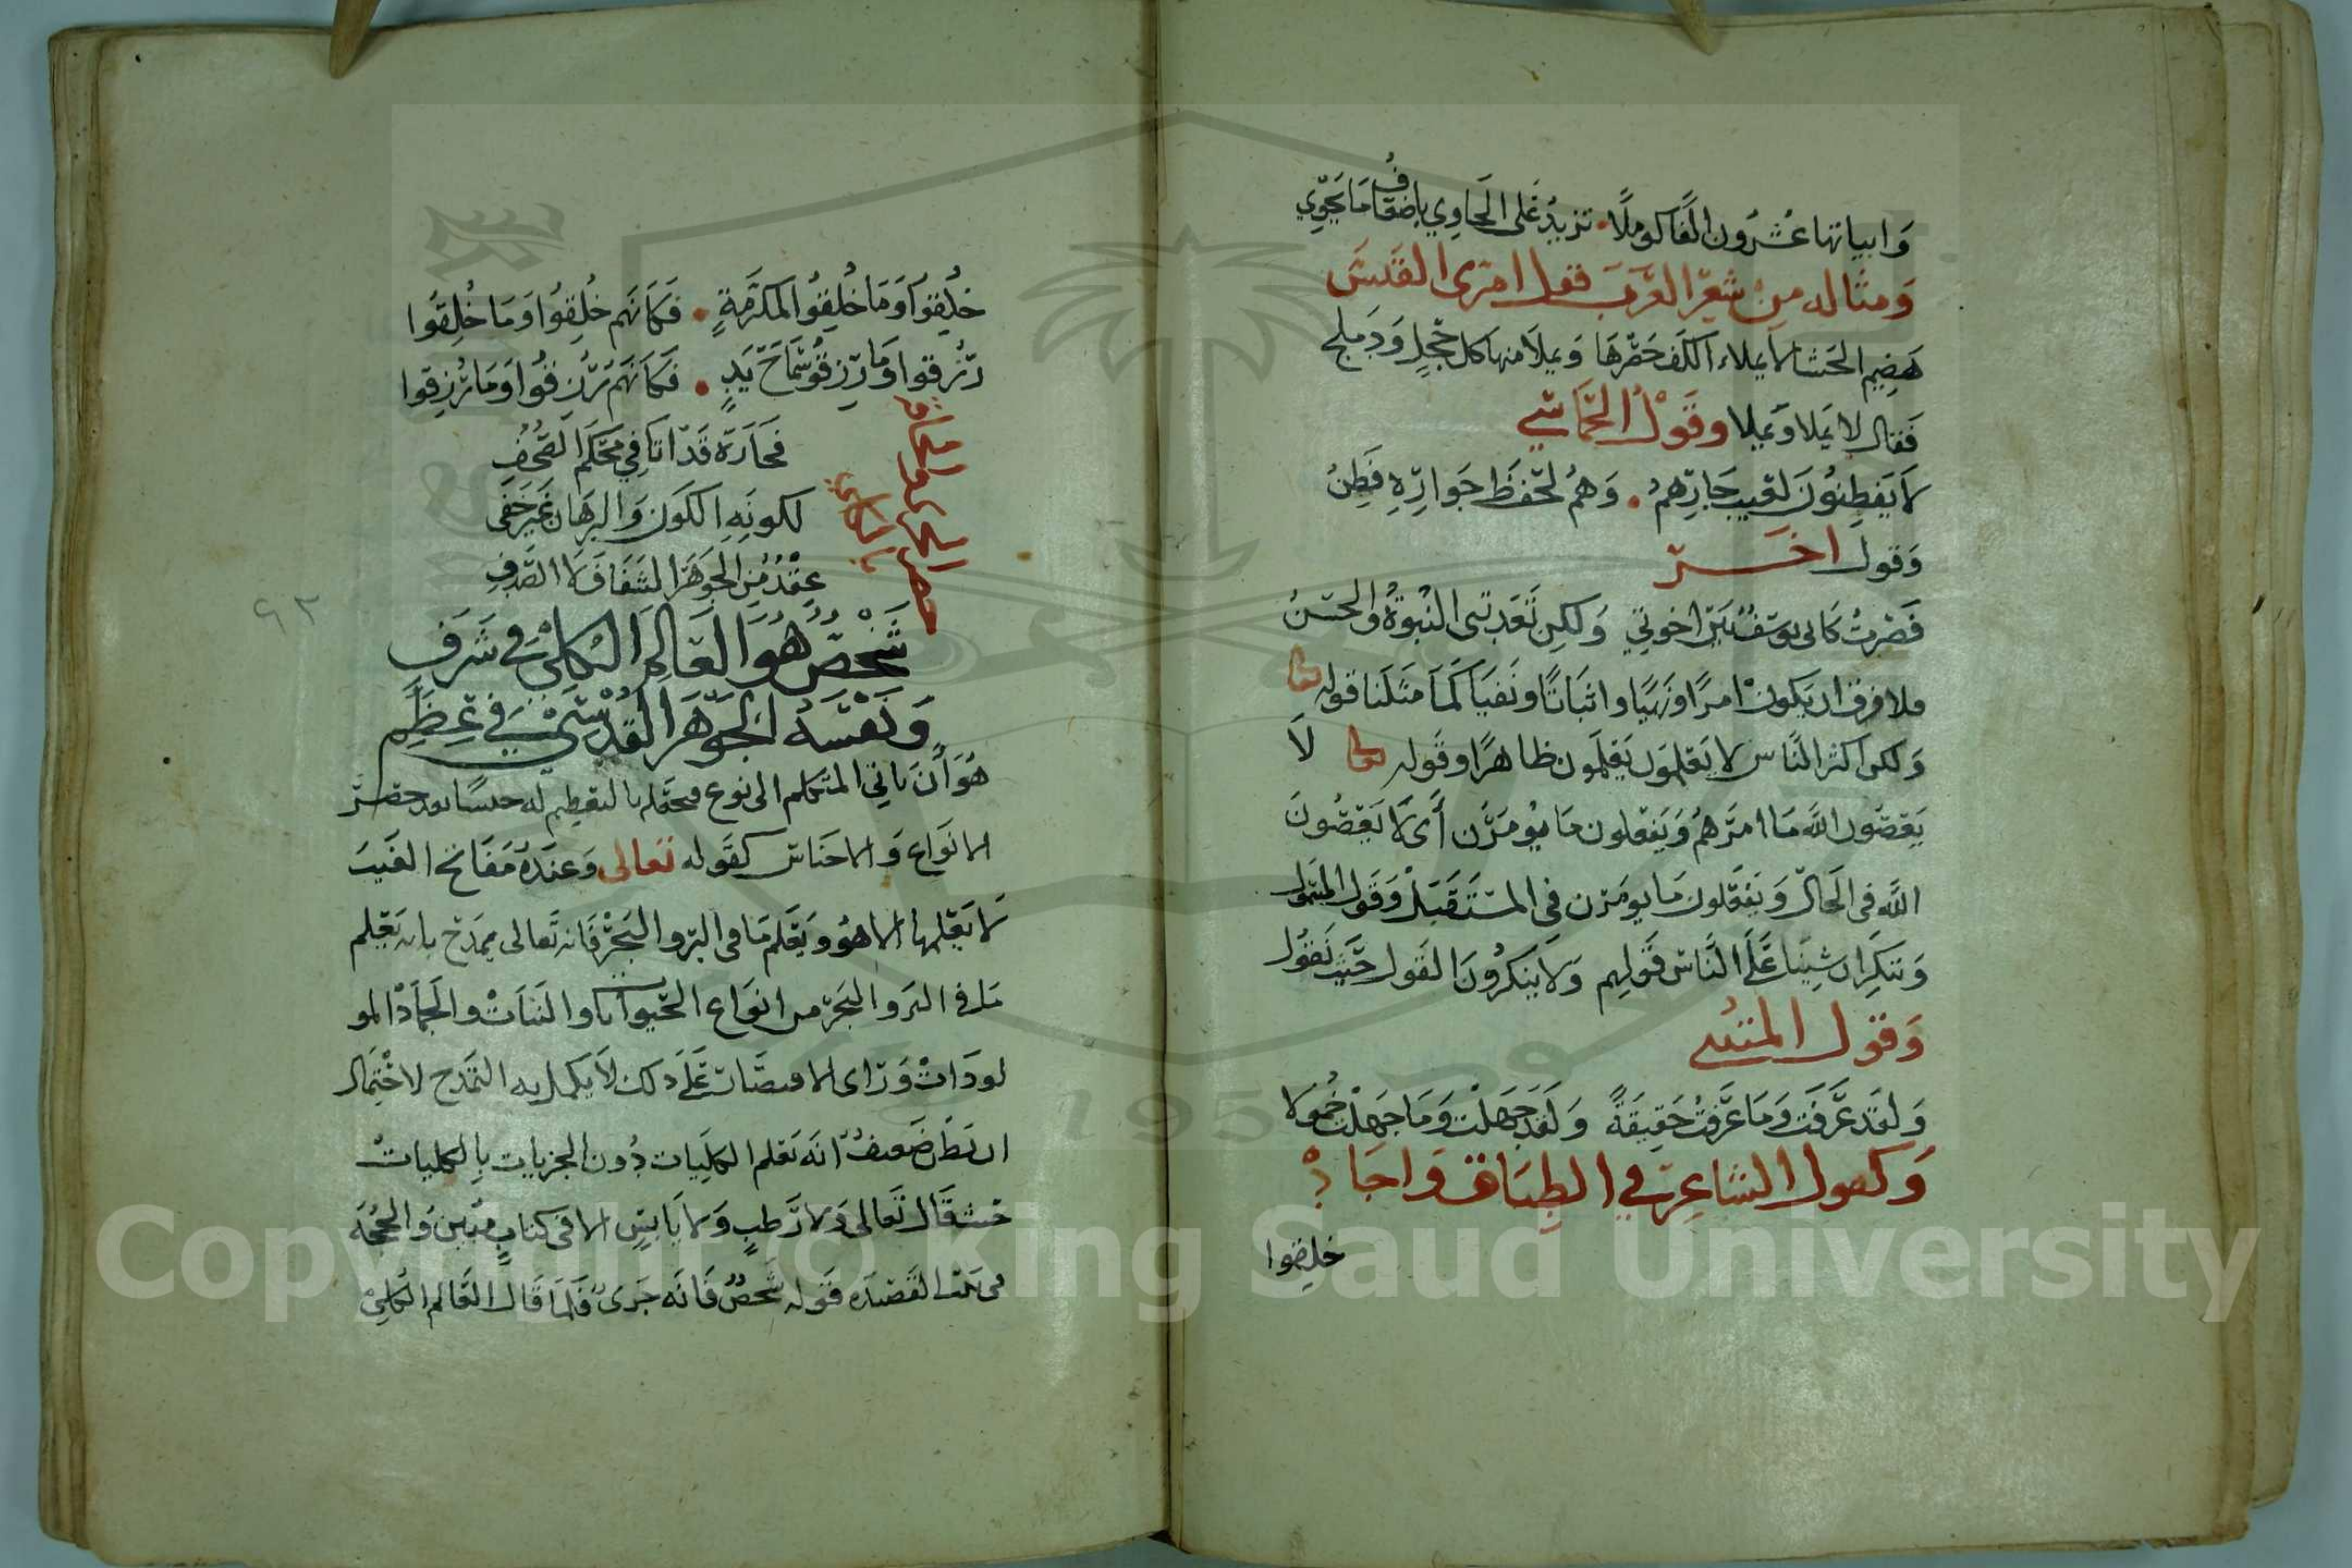 وَابياتها عشرُون الفًا كوملًا • تزيدُ عَلى الحَاوِي باضعَافُ مَا يحوِي
وَمثاله مِن شعِر العَرَب قول امرى القَيسَ
هَضِيم الحَشا لا يملاء الكف خصرهَا وَيملأ منها كل حجلٍ وَدَملج
فَقال لا يَملا وَيملا وقَوْلُ الحَمَاسِي
لاَ يَفطِنُونَ لعَيب جَارِهم • وَهمُ لحفظِ جَوارِهِ فطِنُ
وَقول اخَر
فَصرتُ كَانى يوسَفُ بَيْن اخوتي وَلكِن تعَدتنى النُبوَّةُ والحسْنُ
فلا فرق ان يَكونْ امرًا ونَهيًا واثبَاتًا ونَفيَا كَمَا مَثلنَا قوله تعا
وَلكن اكثر النَّاس لا يَعْلموَن يَعْلمون ظاهرًا وقَوله تعا لاَ
يَعصُون اللَّه مَا امرَهُم وَيَفعَلون مَا يُؤمَرُن أَى لاَ يَعصُونَ
اللَّه فِى الحَال وَيَفعَلون مَا يومَرُن فِي المستَقبَل وَقَول السَّمَول
وَننكِر ان شيئنا عَلَى النَّاس قَولِهم وَلا يُنكرُونَ القَول حَيْن نَقوُل
وَقول المتنبى
وَلقد عَرفت وَمَا عَرفتُ حَقِيقةً وَلقد جَهلتْ وَمَا جَهلْت خُمُولا
وَكقول الشاعِر في الطِبَاق وَاجَادْ
خلِقوا
خُلِقوُا وَمَا خُلِقوُا لمكرُمَةٍ • فَكَأنَهم خُلِقوُا وَمَا خُلِقُوا
رُزِقوا وَمَا رُزِقوُ سَمَاحَ يَدٍ • فَكَأنَهم رُزِقوُا وَمَا رُزِقوا
حصر الجزئى والحاقه
بالكلي
فحَارَة قَد اتَا فِي محكم الصُحُفِ
لكونِهِ الكَون وَالبرهَان غَير خَفِى
عِقْدُ مِن الجَوهَر الشَفَاف لا الصَدفِ
شَخصٌ هُوَ العَالِمُ الكليُّ في شَرَفِ
وَنَفْسُهُ الجَوهَرُ القُدْسِىُّ في عِظَمِ
هُوَ أن يَاتي المتكلم الى نوع فيجعَله بالتعَظيم له جنسًا بعد حصر
الانوَاع وَالاجنَاس كقوله تعالى وَعندَهُ مَفَاتح الغَيب
لا يَعْلمها الا هُوَ ويَعْلم مَا فى البر والبَحر فَانه تعالى يمدح بانه يَعْلم
مَا في البَر والبَحر من انوَاع الحَيوانات والنَبَاتْ والجَمادْ المو
لودَات وَرَاى الاقتصَار عَلَى ذلك لاَ يكمل به التمدح لاحتِمال
ان يَظن ضَعيفُ انه يَعْلم الكليات دُون الجزيات بالكليات
حَيث قَال تَعالى وَلا رَطبٍ وَلا يَابسٍ الا فى كتابٍ مبين وَالحجة
فى بيت القَصيدَه قوله شخصُ فَانه جَزىُ فلما قَال العَالم الكلي
٩٢
Copyright © King Saud University
1957